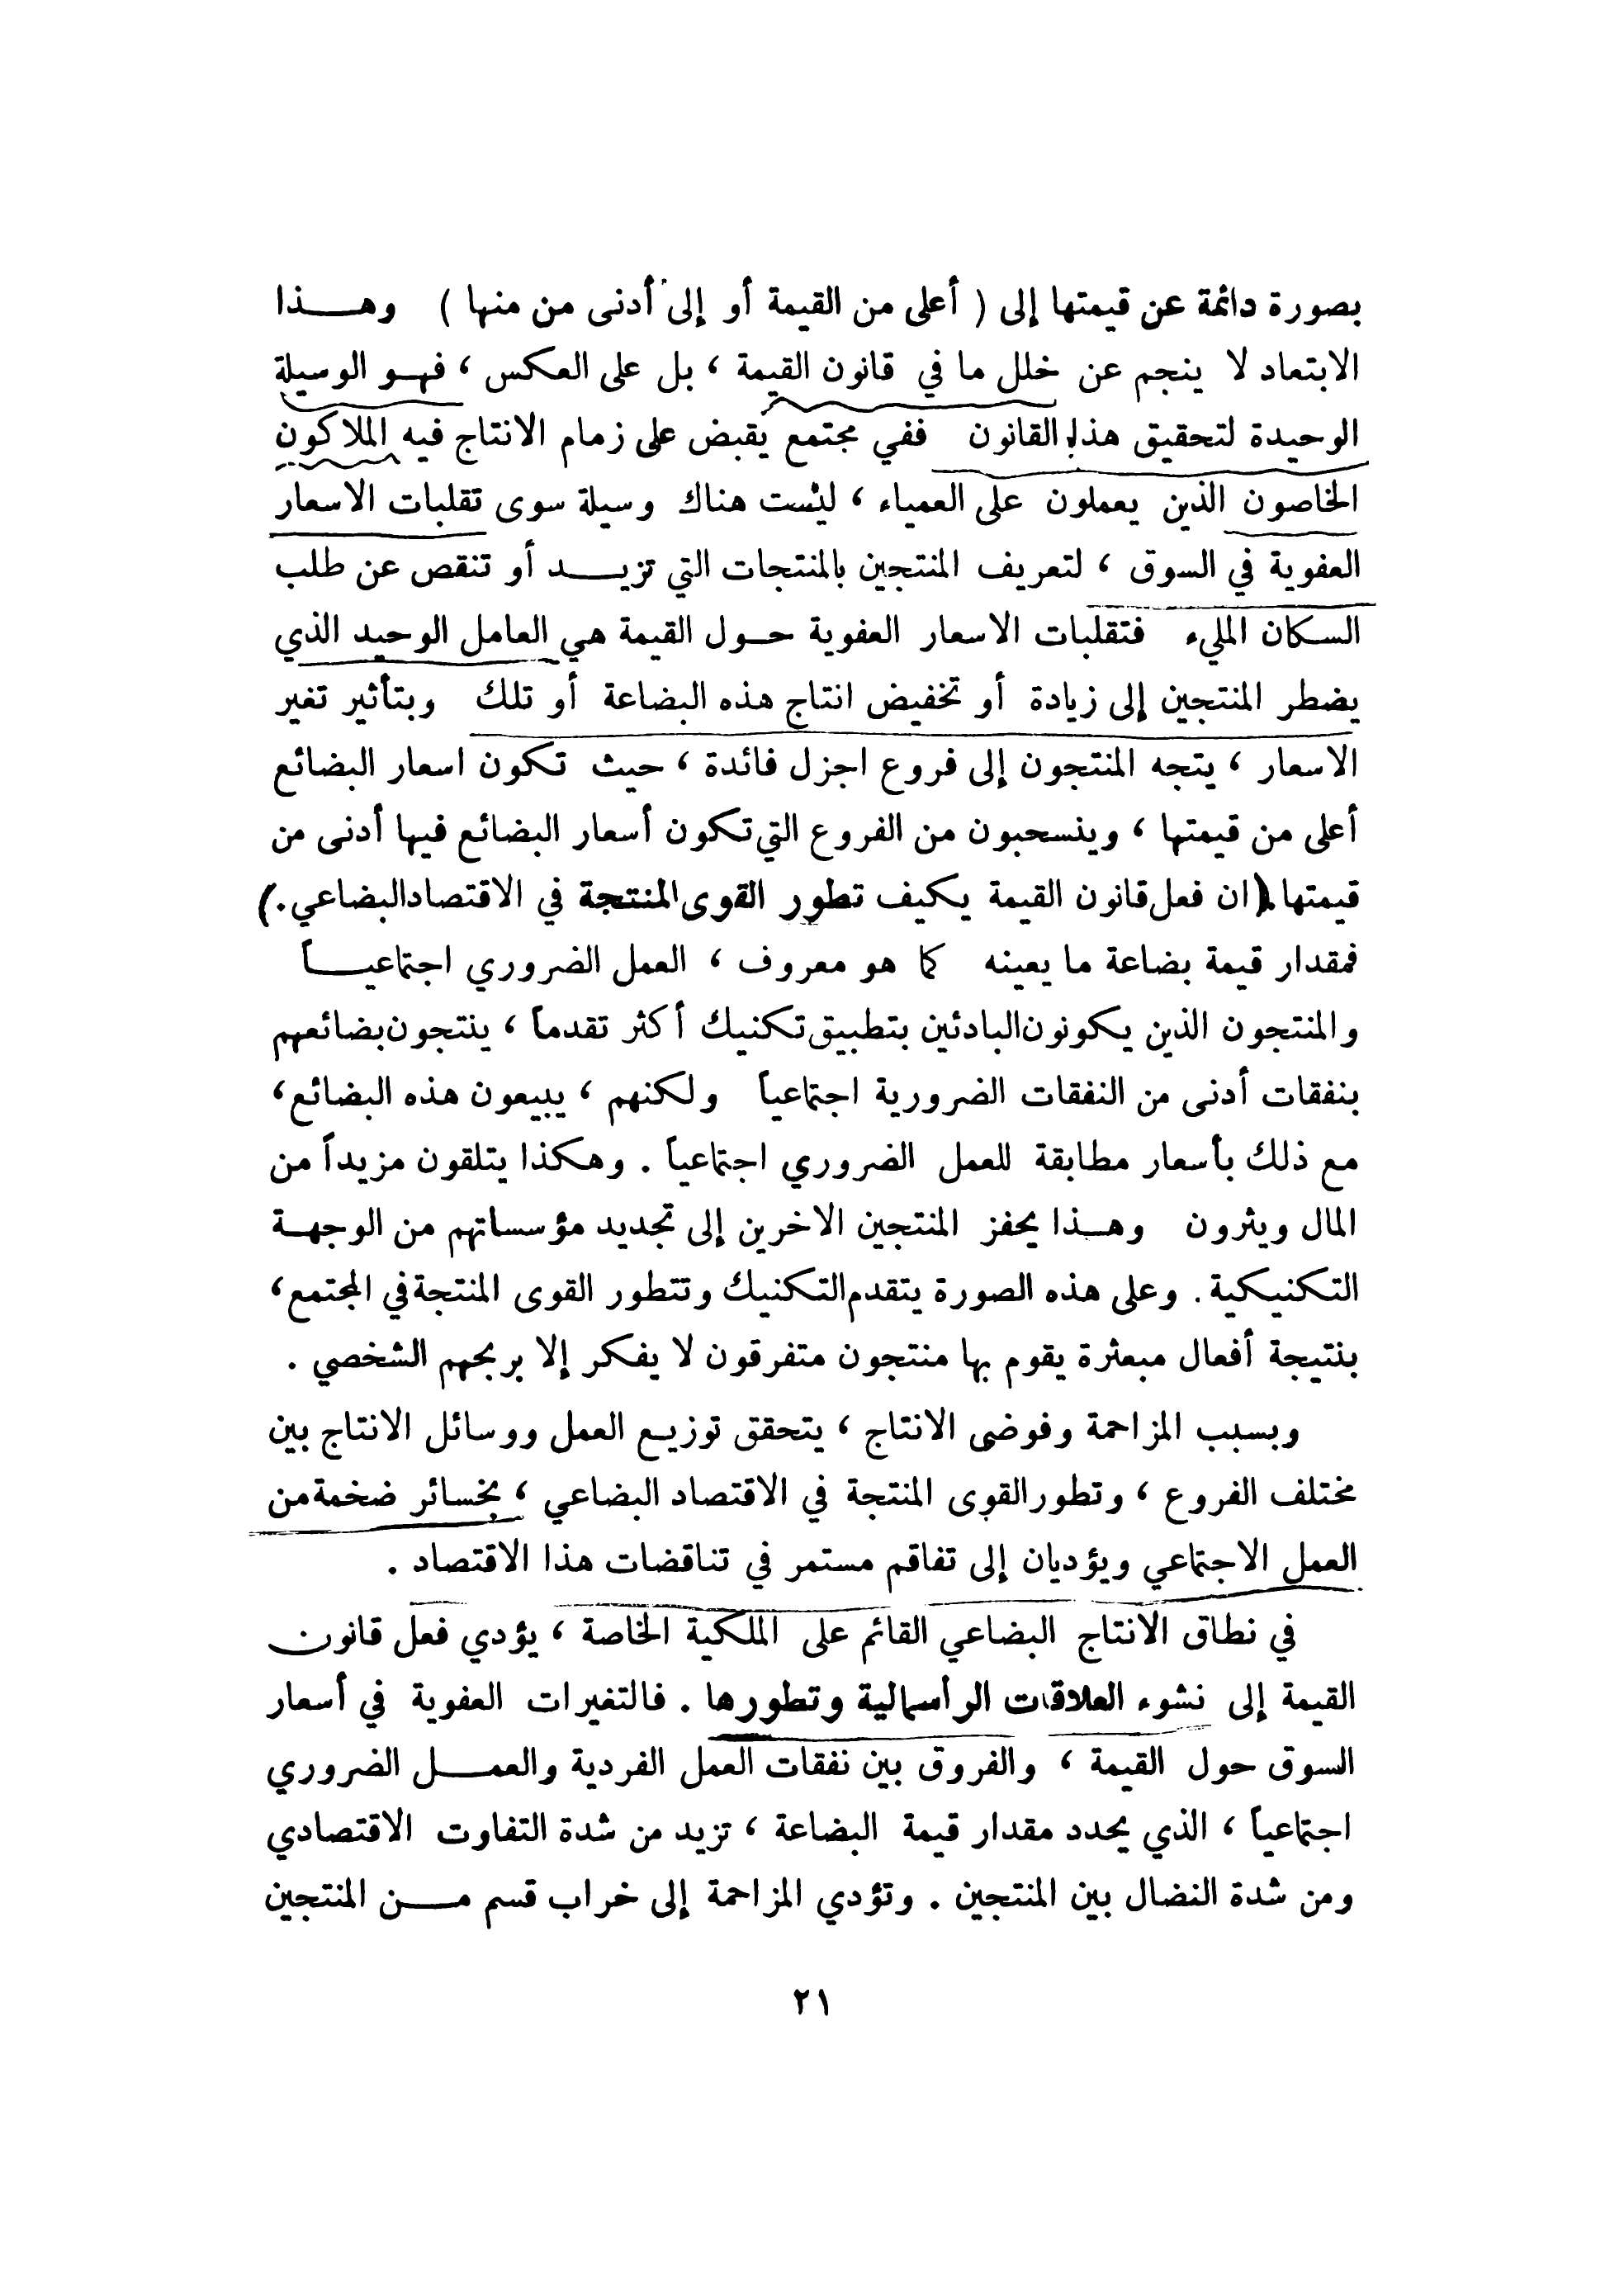 بصورة دائمة عن قيمتها إلى ( أعلى من القيمة أو إلى أدنى من منها ) وهـــذا
الابتعاد لا ينجم عن خلل ما في قانون القيمة ، بل على العكس ، فهـو الوسيلة
الوحيدة لتحقيق هذا القانون ففي مجتمع يقبض على زمام الانتاج فيه الملاكون
الخاصون الذين يعملون على العمياء ، ليست هناك وسيلة سوى تقلبات الاسعار
العفوية في السوق ، لتعريف المنتجين بالمنتجات التي تزيـــد أو تنقص عن طلب
السكان المليء فتقلبات الاسعار العفوية حـول القيمة هي العامل الوحيد الذي
يضطر المنتجين إلى زيادة أو تخفيض انتاج هذه البضاعة أو تلك وبتأثير تغير
الاسعار ، يتجه المنتجون إلى فروع اجزل فائدة ، حيث تكون اسعار البضائع
أعلى من قيمتها ، وينسحبون من الفروع التي تكون أسعار البضائع فيها أدنى من
قيمتها.(ان فعل قانون القيمة يكيف تطور القوى المنتجة في الاقتصاد البضاعي.)
فمقدار قيمة بضاعة ما يعينه كما هو معروف ، العمل الضروري اجتماعيـــاً
والمنتجون الذين يكونون البادئين بتطبيق تكنيك أكثر تقدماً ، ينتجون بضائعهم
بنفقات أدنى من النفقات الضرورية اجتماعياً ولكنهم ، يبيعون هذه البضائع،
مع ذلك بأسعار مطابقة للعمل الضروري اجتماعياً . وهكذا يتلقون مزيداً من
المال ويثرون وهـذا يحفز المنتجين الاخرين إلى تجديد مؤسساتهم من الوجهـة
التكنيكية . وعلى هذه الصورة يتقدم التكنيك وتتطور القوى المنتجة في المجتمع،
بنتيجة أفعال مبعثرة يقوم بها منتجون متفرقون لا يفكر إلا بربحهم الشخصي .
وبسبب المزاحمة وفوضى الانتاج ، يتحقق توزيـع العمل ووسائل الانتاج بين
مختلف الفروع ، وتطور القوى المنتجة في الاقتصاد البضاعي ، بخسائر ضخمة من
العمل الاجتماعي ويؤديان إلى تفاقم مستمر في تناقضات هذا الاقتصاد .
في نطاق الانتاج البضاعي القائم على الملكية الخاصة ، يؤدي فعل قانون
القيمة إلى نشوء العلاقات الرأسمالية وتطورها . فالتغيرات العفوية في أسعار
السوق حول القيمة ، والفروق بين نفقات العمل الفردية والعمـــل الضروري
اجتماعياً ، الذي يحدد مقدار قيمة البضاعة ، تزيد من شدة التفاوت الاقتصادي
ومن شدة النضال بين المنتجين . وتؤدي المزاحمة إلى خراب قسم مـــن المنتجين
٢١